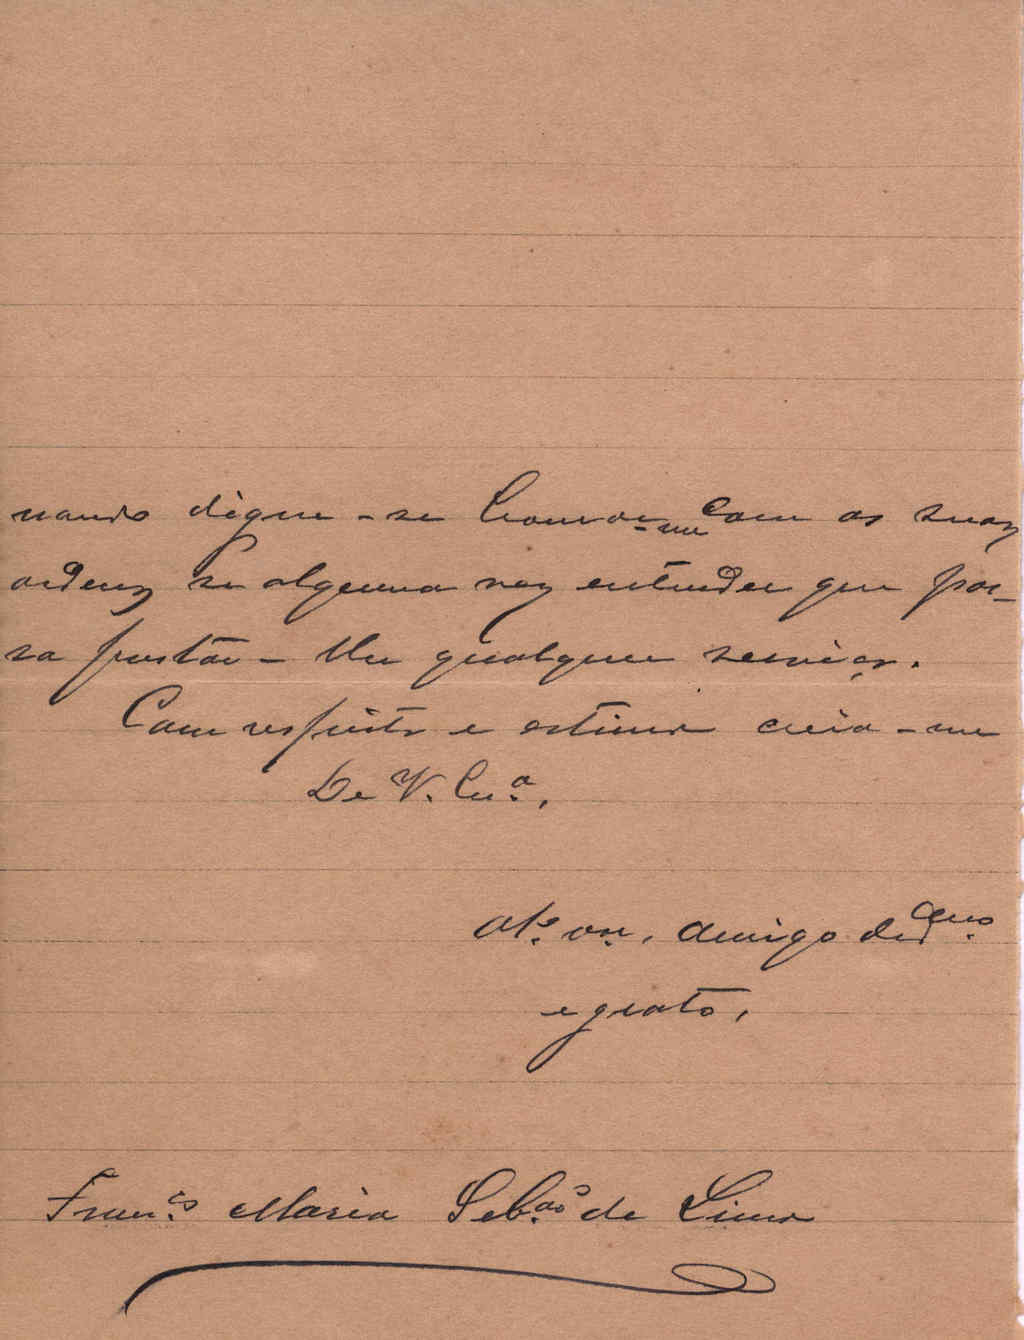 nando digne-se honrar-me com as suas
ordens se alguma vez entender que pos-
sa prestar-lhe qualquer serviço.
Com respeito e estima creia-me
De V. Exª.
Atº. vnr. Amigo dedmo.
e grato,
Francº. Maria Sebão. de Lima